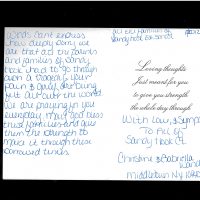 Words Cant express
how deeply sorry we
are that all the parents
and families of Sandy
Hook had to go through
such a tragedy. Your
pain & grief are being
felt all over the world.
We are praying in you
everyday. May God bless
these families and give
them the strength to
make it through these
times.
all the families of
Sandy Hook
Loving thoughts
Just meant for you
to give you strength
the whole day through.
With Love & Sympathy
To All of
Sandy Hook CT.
Christine & Gabriella
Middletown NY